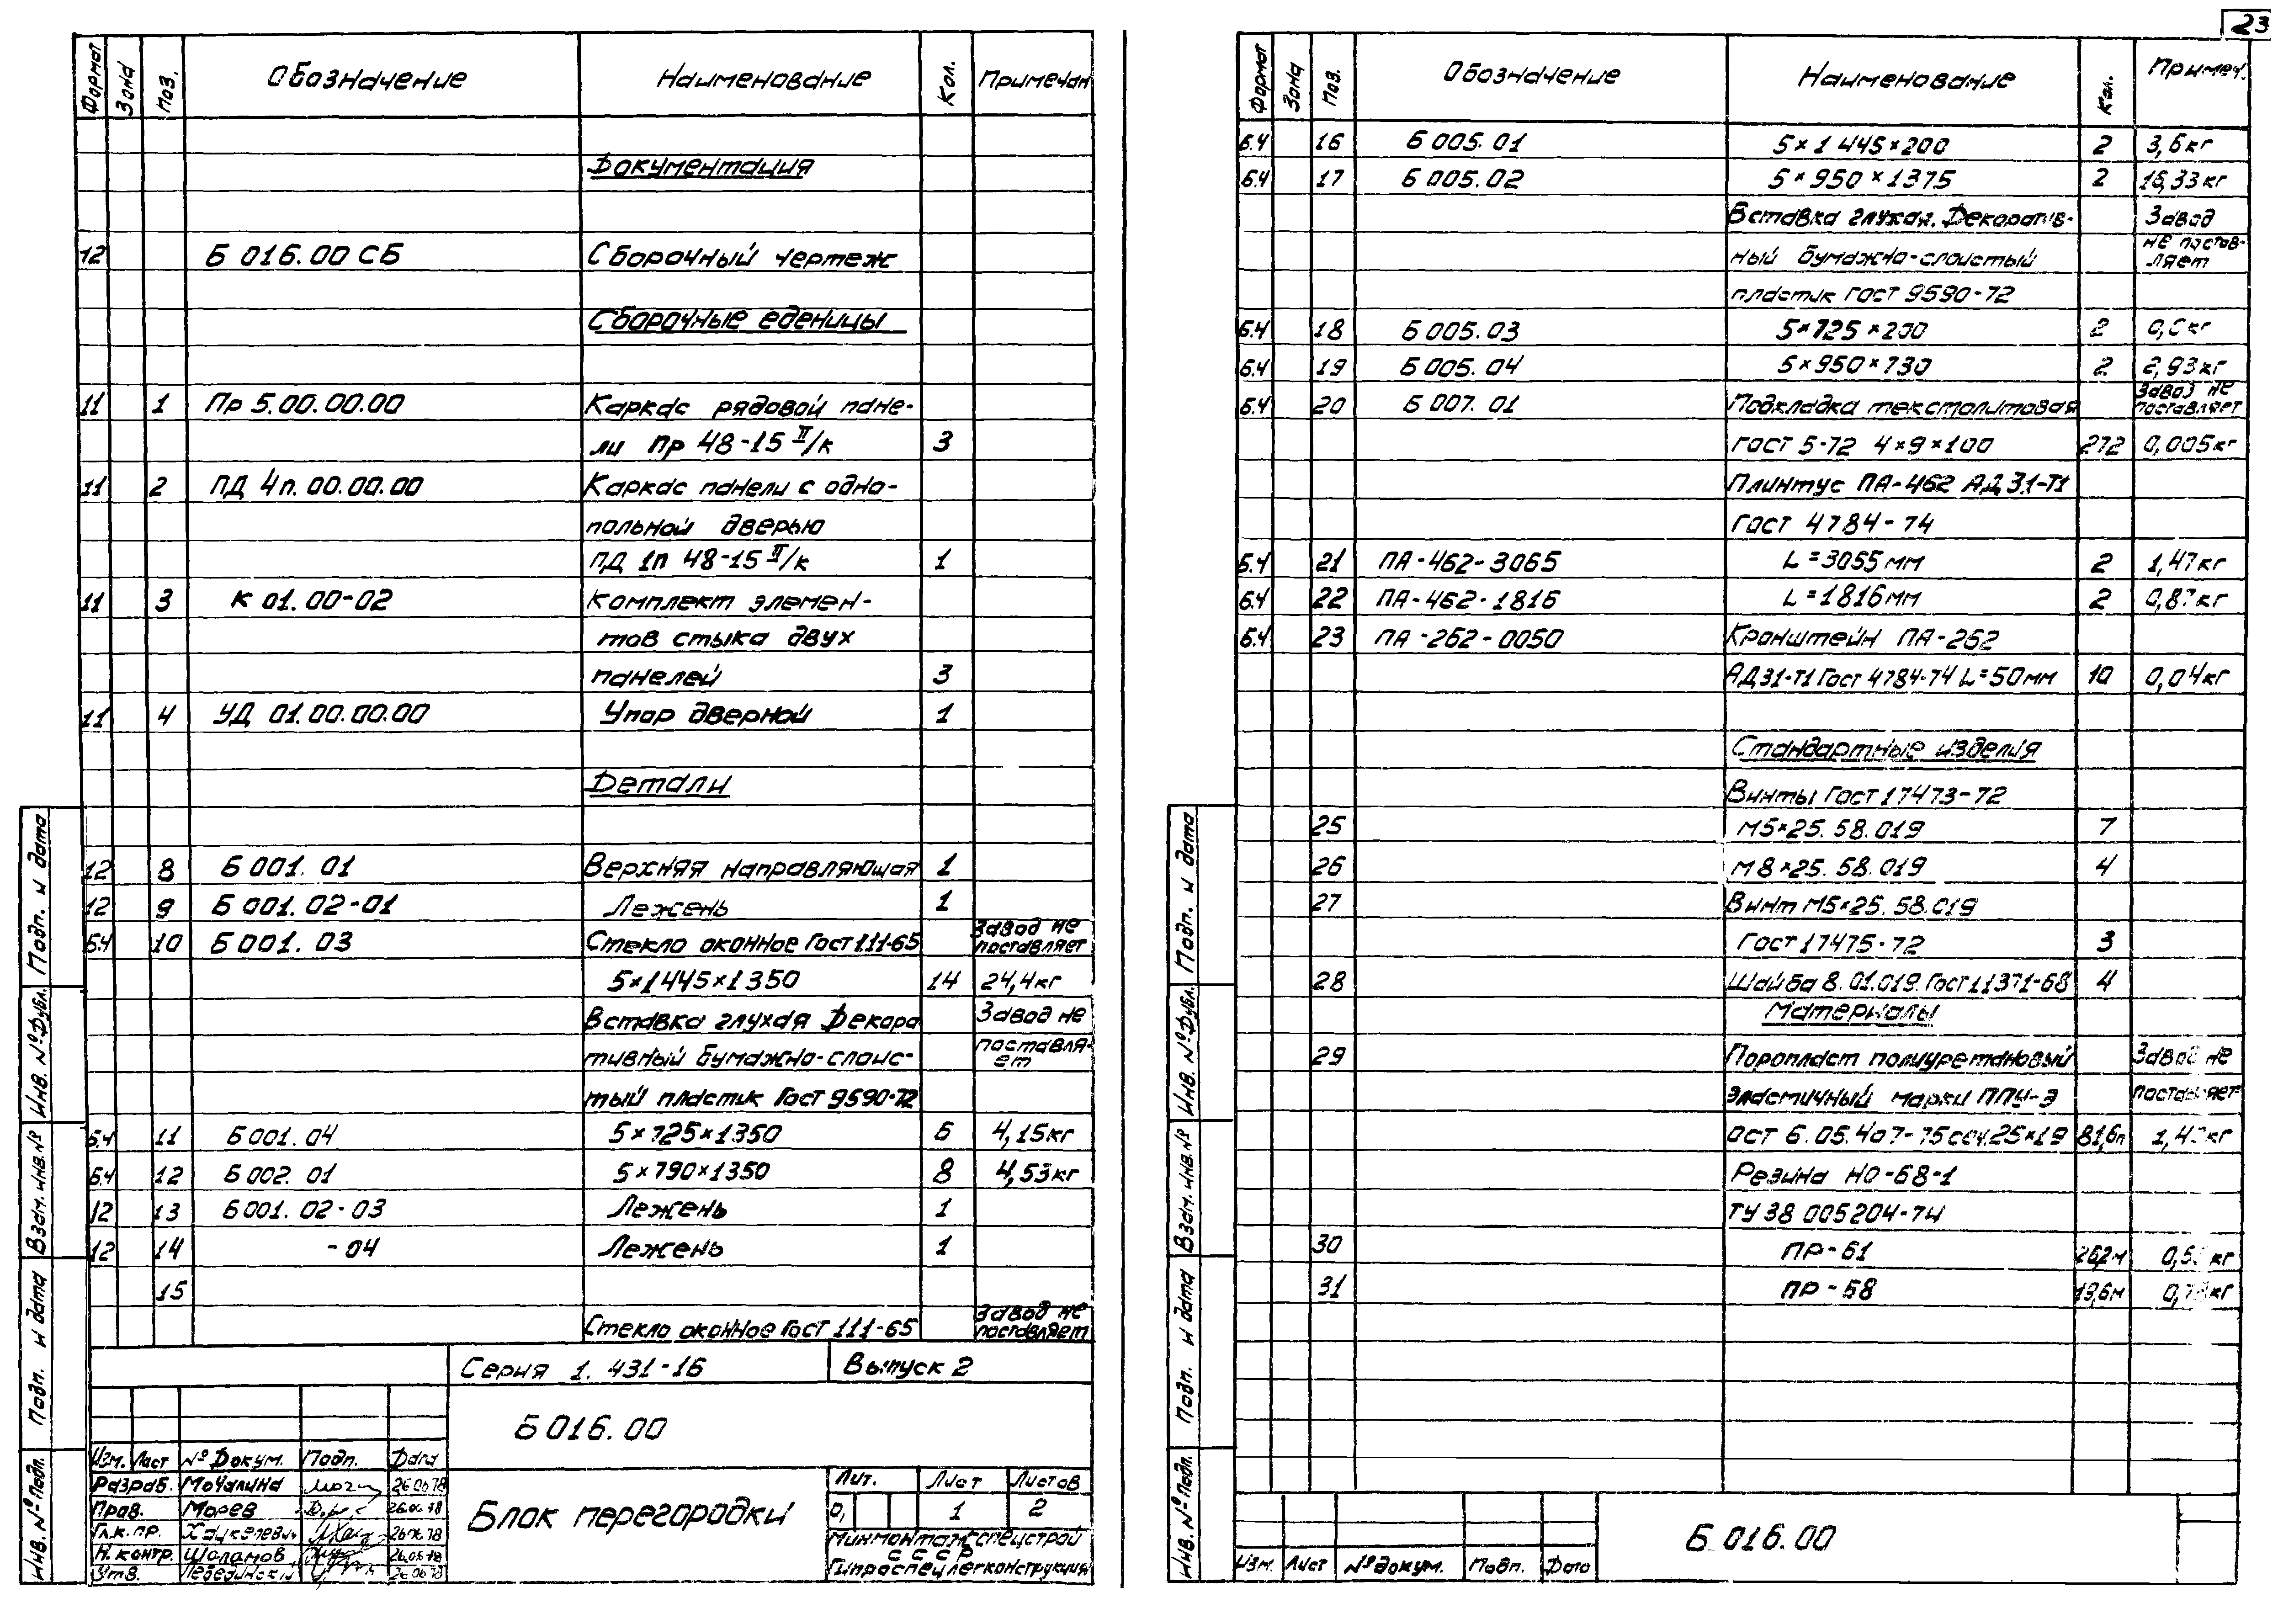 23
Формат Зона Поз. Обозначение Наименование Кол. Примечан
Документация
12 Б 016.00 СБ Сборочный чертеж
Сборочные еденицы
11 1 Пр 5.00.00.00 Каркас рядовой пане-
ли Пр 48-15 II/к 3
11 2 ПД 4п.00.00.00 Каркас панели с одно-
польной дверью
ПД 1п 48-15 II/к 1
11 3 К 01.00-02 Комплект элемен-
тов стыка двух
панелей 3
11 4 УД 01.00.00.00 Упор дверной 1
Детали
12 8 Б 001.01 Верхняя направляющая 1
12 9 Б 001.02-01 Лежень 1
Б.4 10 Б 001.03 Стекло оконное Гост 111-65 Завод не поставляет
5×1445×1350 14 24,4кг
Вставка глухая Декора Завод не
тивный бумажно-слоис- поставля-
ет
тый пластик Гост 9590-72
Б.4 11 Б 001.04 5×725×1350 6 4,15кг
Б.4 12 Б 002.01 5×790×1350 8 4,53кг
12 13 Б 001.02-03 Лежень 1
12 14 -04 Лежень 1
15
Стекло оконное Гост 111-65 Завод не поставляет
Серия 1.431-16 Выпуск 2
Б 016.00
Изм. Лист № Докум. Подп. Дата
Разраб. Мочалина 26.06.78
Пров. Морев 26.06.78
Гл.к.пр. 26.06.78
Н.контр. Шаламов 26.06.78
Утв. 26.06.78
Блок перегородки
Лит. Лист Листов
1 2
Минмонтажспецстрой
СССР
Гипроспецлегконструкция
Подп. и дата
Инв. № Дубл.
Взам. инв. №
Подп. и дата
Инв. № подл.
Формат Зона Поз. Обозначение Наименование Кол. Примеч.
Б.4 16 Б 005.01 5×1445×200 2 3,6кг
Б.4 17 Б 005.02 5×950×1375 2 16,33кг
Вставка глухая. Декоратив- Завод
ный бумажно-слоистый не постав-
ляет
пластик Гост 9590-72
Б.4 18 Б 005.03 5×725×200 2
Б.4 19 Б 005.04 5×950×730 2 2,93кг
Б.4 20 Б 007.01 Подкладка текстолитовая Завод не поставляет
Гост 5-72 4×9×100 272 0,005кг
Плинтус ПА-462 АД 31-Т1
Гост 4784-74
Б.4 21 ПА-462-3065 L=3055мм 2 1,47кг
Б.4 22 ПА-462-1816 L=1816мм 2
Б.4 23 ПА-262-0050 Кронштейн ПА-262
АД31-Т1 Гост 4784-74 L=50мм 10 0,04кг
Стандартные изделия
Винты Гост 17473-72
25 М5×25.58.019 7
26 М8×25.58.019 4
27 Винт М5×25.58.019
Гост 17475-72 3
28 Шайба 8.01.019 Гост 11371-68 4
Материалы
29 Поропласт полиуретановый Завод не
эластичный марки ППУ-Э поставляет
ост 6.05.407-75 сеч.25×19 81,6п
Резина НО-68-1
ТУ 38 005204-74
30 ПР-61 26,2м
31 ПР-58 19,6м
Подп. и дата
Инв. № Дубл.
Взам. инв. №
Подп. и дата
Инв. № подл.
Б 016.00
Изм. Лист № докум. Подп. Дата